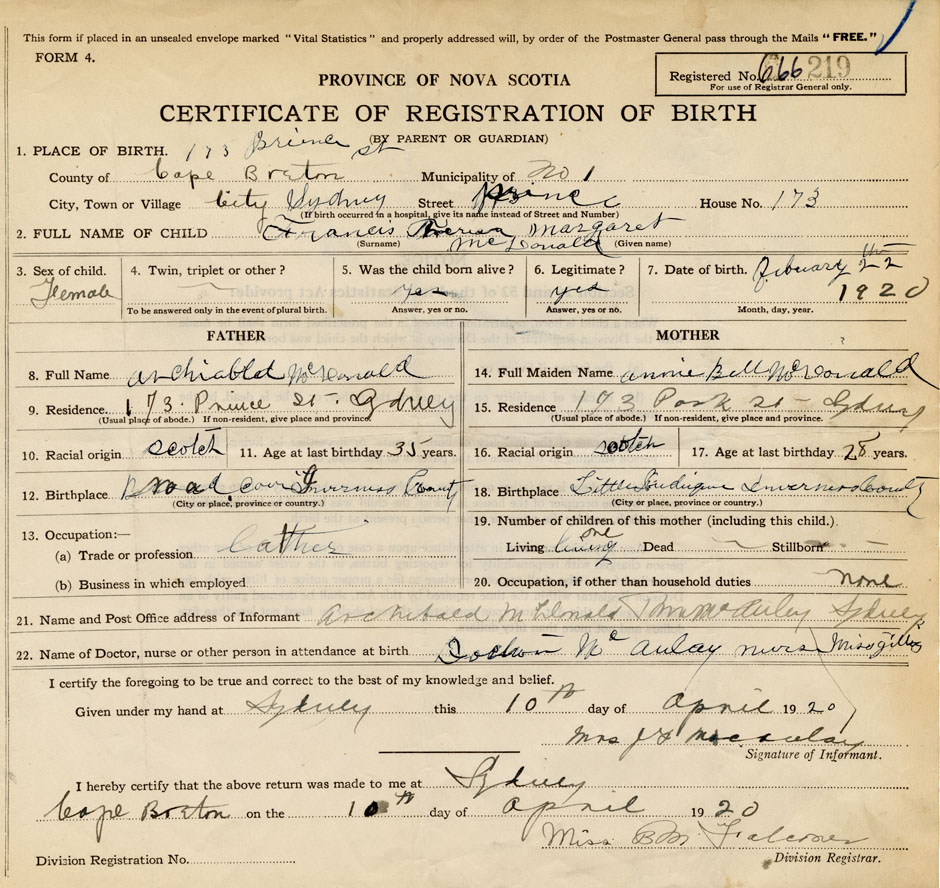 This form if placed in an unsealed envelope marked "Vital Statistics" and properly addressed will, by order of the Postmaster General pass through the Mails "FREE."
FORM 4.
PROVINCE OF NOVA SCOTIA
Registered No. 666 219
For use of Registrar General only.
CERTIFICATE OF REGISTRATION OF BIRTH
(BY PARENT OR GUARDIAN)
1. PLACE OF BIRTH. 173 Prince St
County of Cape Breton Municipality of No 1
City, Town or Village City Sydney Street Prince House No. 173
(If birth occurred in a hospital, give its name instead of Street and Number)
2. FULL NAME OF CHILD Francis Theresa Margaret
(Surname) McDonald (Given name)
3. Sex of child. 4. Twin, triplet or other? 5. Was the child born alive? 6. Legitimate? 7. Date of birth. Febuary 22
Female yes yes 1920
To be answered only in the event of plural birth. Answer, yes or no. Answer, yes or no. Month, day, year.
FATHER MOTHER
8. Full Name Archiabld McDonald 14. Full Maiden Name Annie Bell McDonald
9. Residence. 173 Prince St - Sydney 15. Residence 173 St - Sydney
(Usual place of abode.) If non-resident, give place and province. (Usual place of abode.) If non-resident, give place and province.
10. Racial origin Scotch 11. Age at last birthday 35 years. 16. Racial origin Scotch 17. Age at last birthday 28 years.
12. Birthplace Broad Cove Inverness County 18. Birthplace Little Judique Inverness County
(City or place, province or country.) (City or place, province or country.)
13. Occupation:— 19. Number of children of this mother (including this child.).
(a) Trade or profession Living living one Dead — Stillborn —
(b) Business in which employed 20. Occupation, if other than household duties none
21. Name and Post Office address of Informant Archibald McDonald McAulay Sydney
22. Name of Doctor, nurse or other person in attendance at birth Doctor McAulay nurse Miss Gillis
I certify the foregoing to be true and correct to the best of my knowledge and belief.
Given under my hand at Sydney this 10th day of April 1920
Mrs J McAulay
Signature of Informant.
I hereby certify that the above return was made to me at Sydney
Cape Breton on the 10th day of April 1920
Miss B M Falconer
Division Registration No. Division Registrar.